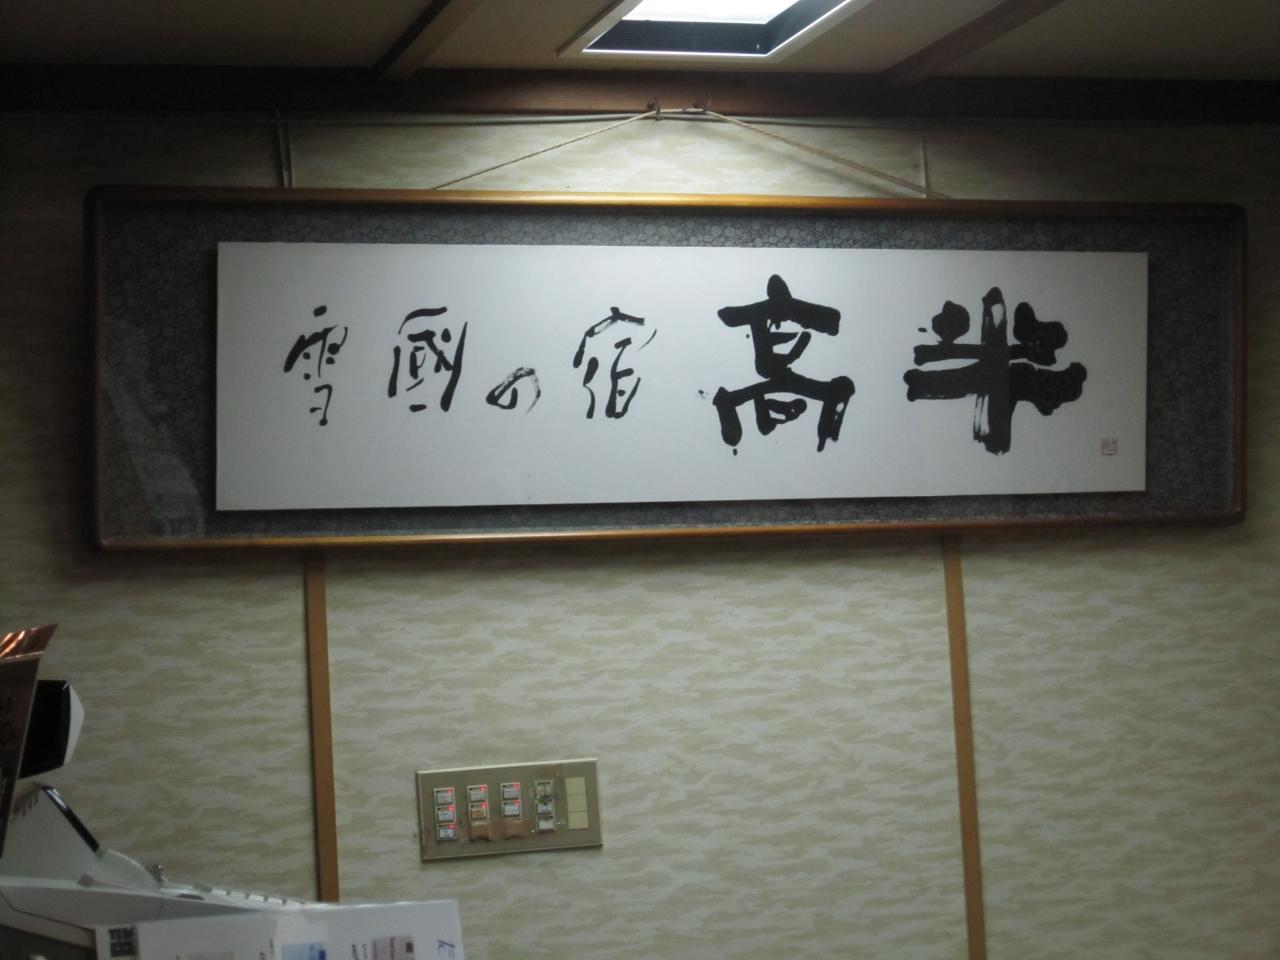 雪國の宿 高半